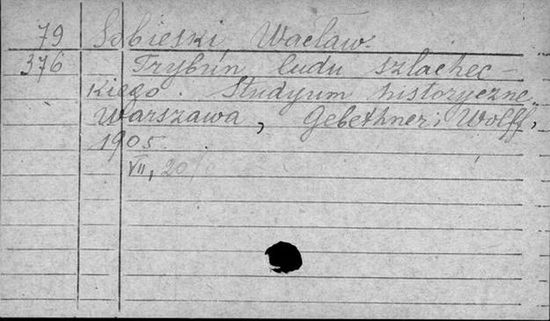 79 Sobieski Wacław.
376 Trybun ludu szlachec-
kiego. Studyum historyczne.
Warszawa, Gebethner i Wolff,
1905
VII, 20